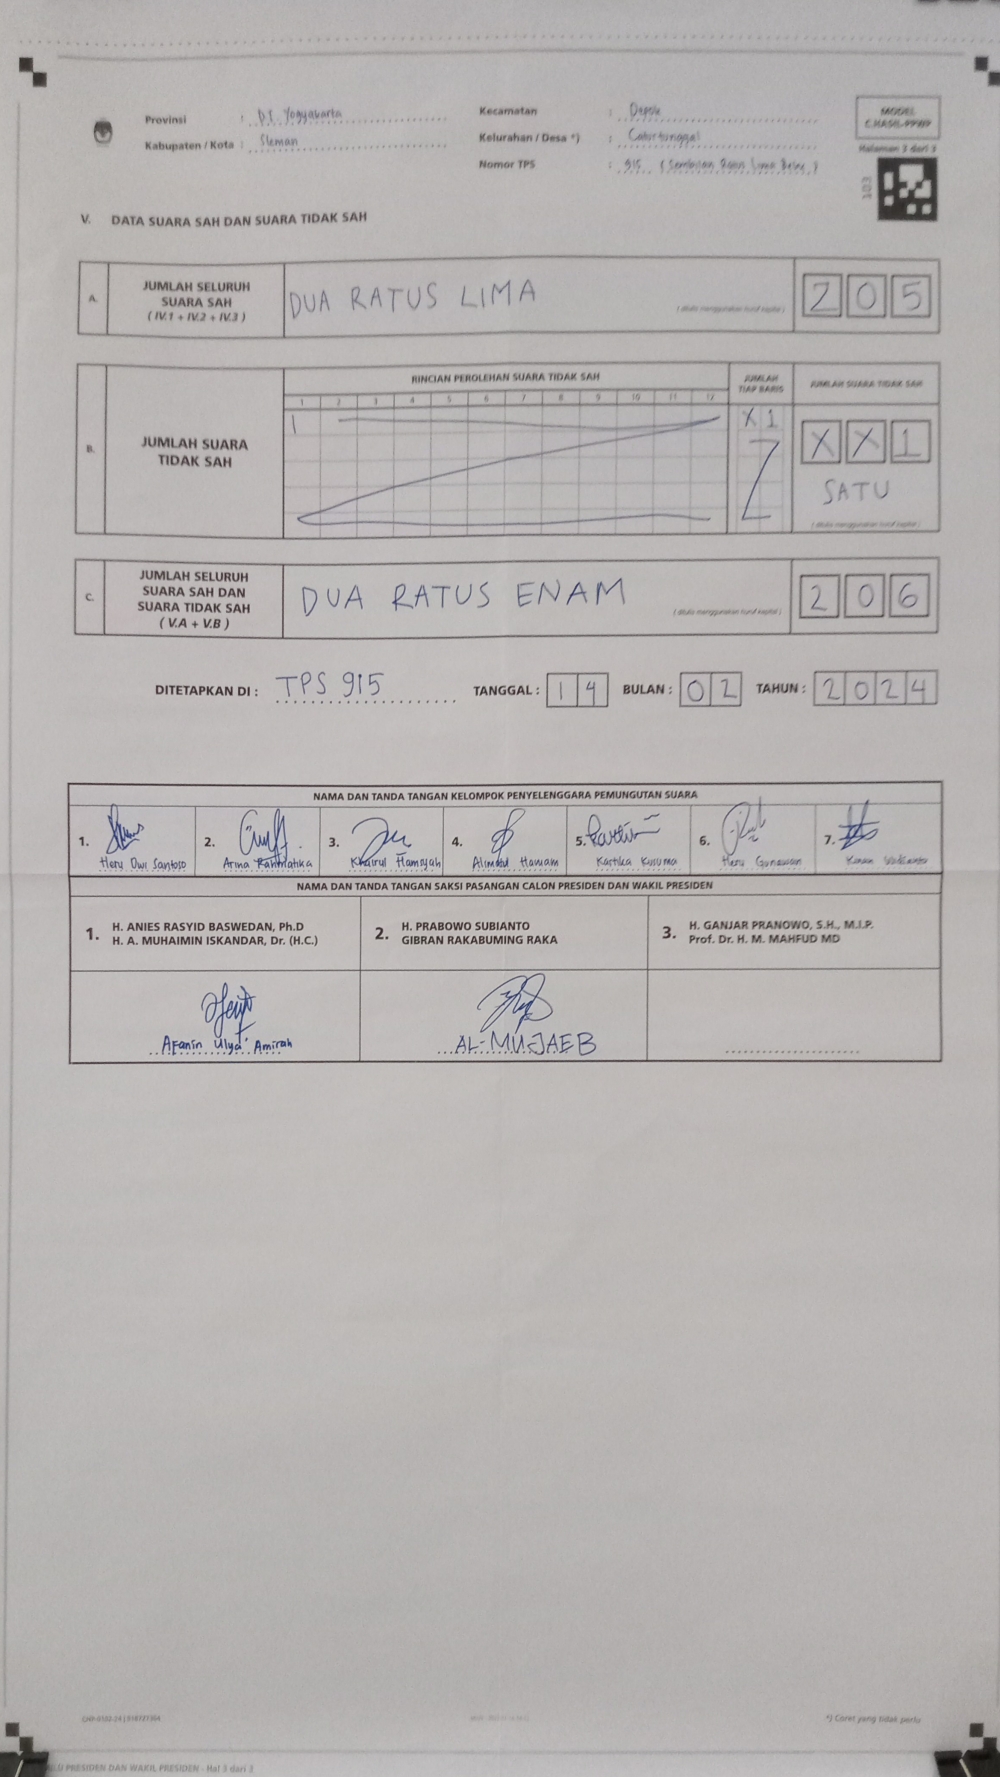 Provinsi : D.I. Yogyakarta
Kabupaten / Kota : Sleman
Kecamatan : Depok
Kelurahan / Desa *) : Caturtunggal
Nomor TPS : 915 (Sembilan Ratus Lima Belas)
MODEL
C.HASIL-PPWP
Halaman 3 dari 3
103
V. DATA SUARA SAH DAN SUARA TIDAK SAH
A. JUMLAH SELURUH SUARA SAH (IV.1 + IV.2 + IV.3)
DUA RATUS LIMA
(ditulis menggunakan huruf kapital)
2 0 5
B. JUMLAH SUARA TIDAK SAH
RINCIAN PEROLEHAN SUARA TIDAK SAH
1 2 3 4 5 6 7 8 9 10 11 12
JUMLAH TIAP BARIS
X 1
JUMLAH SUARA TIDAK SAH
X X 1
SATU
(ditulis menggunakan huruf kapital)
C. JUMLAH SELURUH SUARA SAH DAN SUARA TIDAK SAH (V.A + V.B)
DUA RATUS ENAM
(ditulis menggunakan huruf kapital)
2 0 6
DITETAPKAN DI : TPS 915 TANGGAL : 14 BULAN : 02 TAHUN : 2024
NAMA DAN TANDA TANGAN KELOMPOK PENYELENGGARA PEMUNGUTAN SUARA
1. Heru Dwi Santoso
2. Arina Rahmatika
3. Khairul Hamsyah
4. Alimatul Hawam
5. Kartika Kusuma
6. Heru Gunawan
7.
NAMA DAN TANDA TANGAN SAKSI PASANGAN CALON PRESIDEN DAN WAKIL PRESIDEN
1. H. ANIES RASYID BASWEDAN, Ph.D
H. A. MUHAIMIN ISKANDAR, Dr. (H.C.)
2. H. PRABOWO SUBIANTO
GIBRAN RAKABUMING RAKA
3. H. GANJAR PRANOWO, S.H., M.I.P.
Prof. Dr. H. M. MAHFUD MD
Afanin Ulya' Amirah
AL-MUJAEB
*) Coret yang tidak perlu
PRESIDEN DAN WAKIL PRESIDEN - Hal 3 dari 3